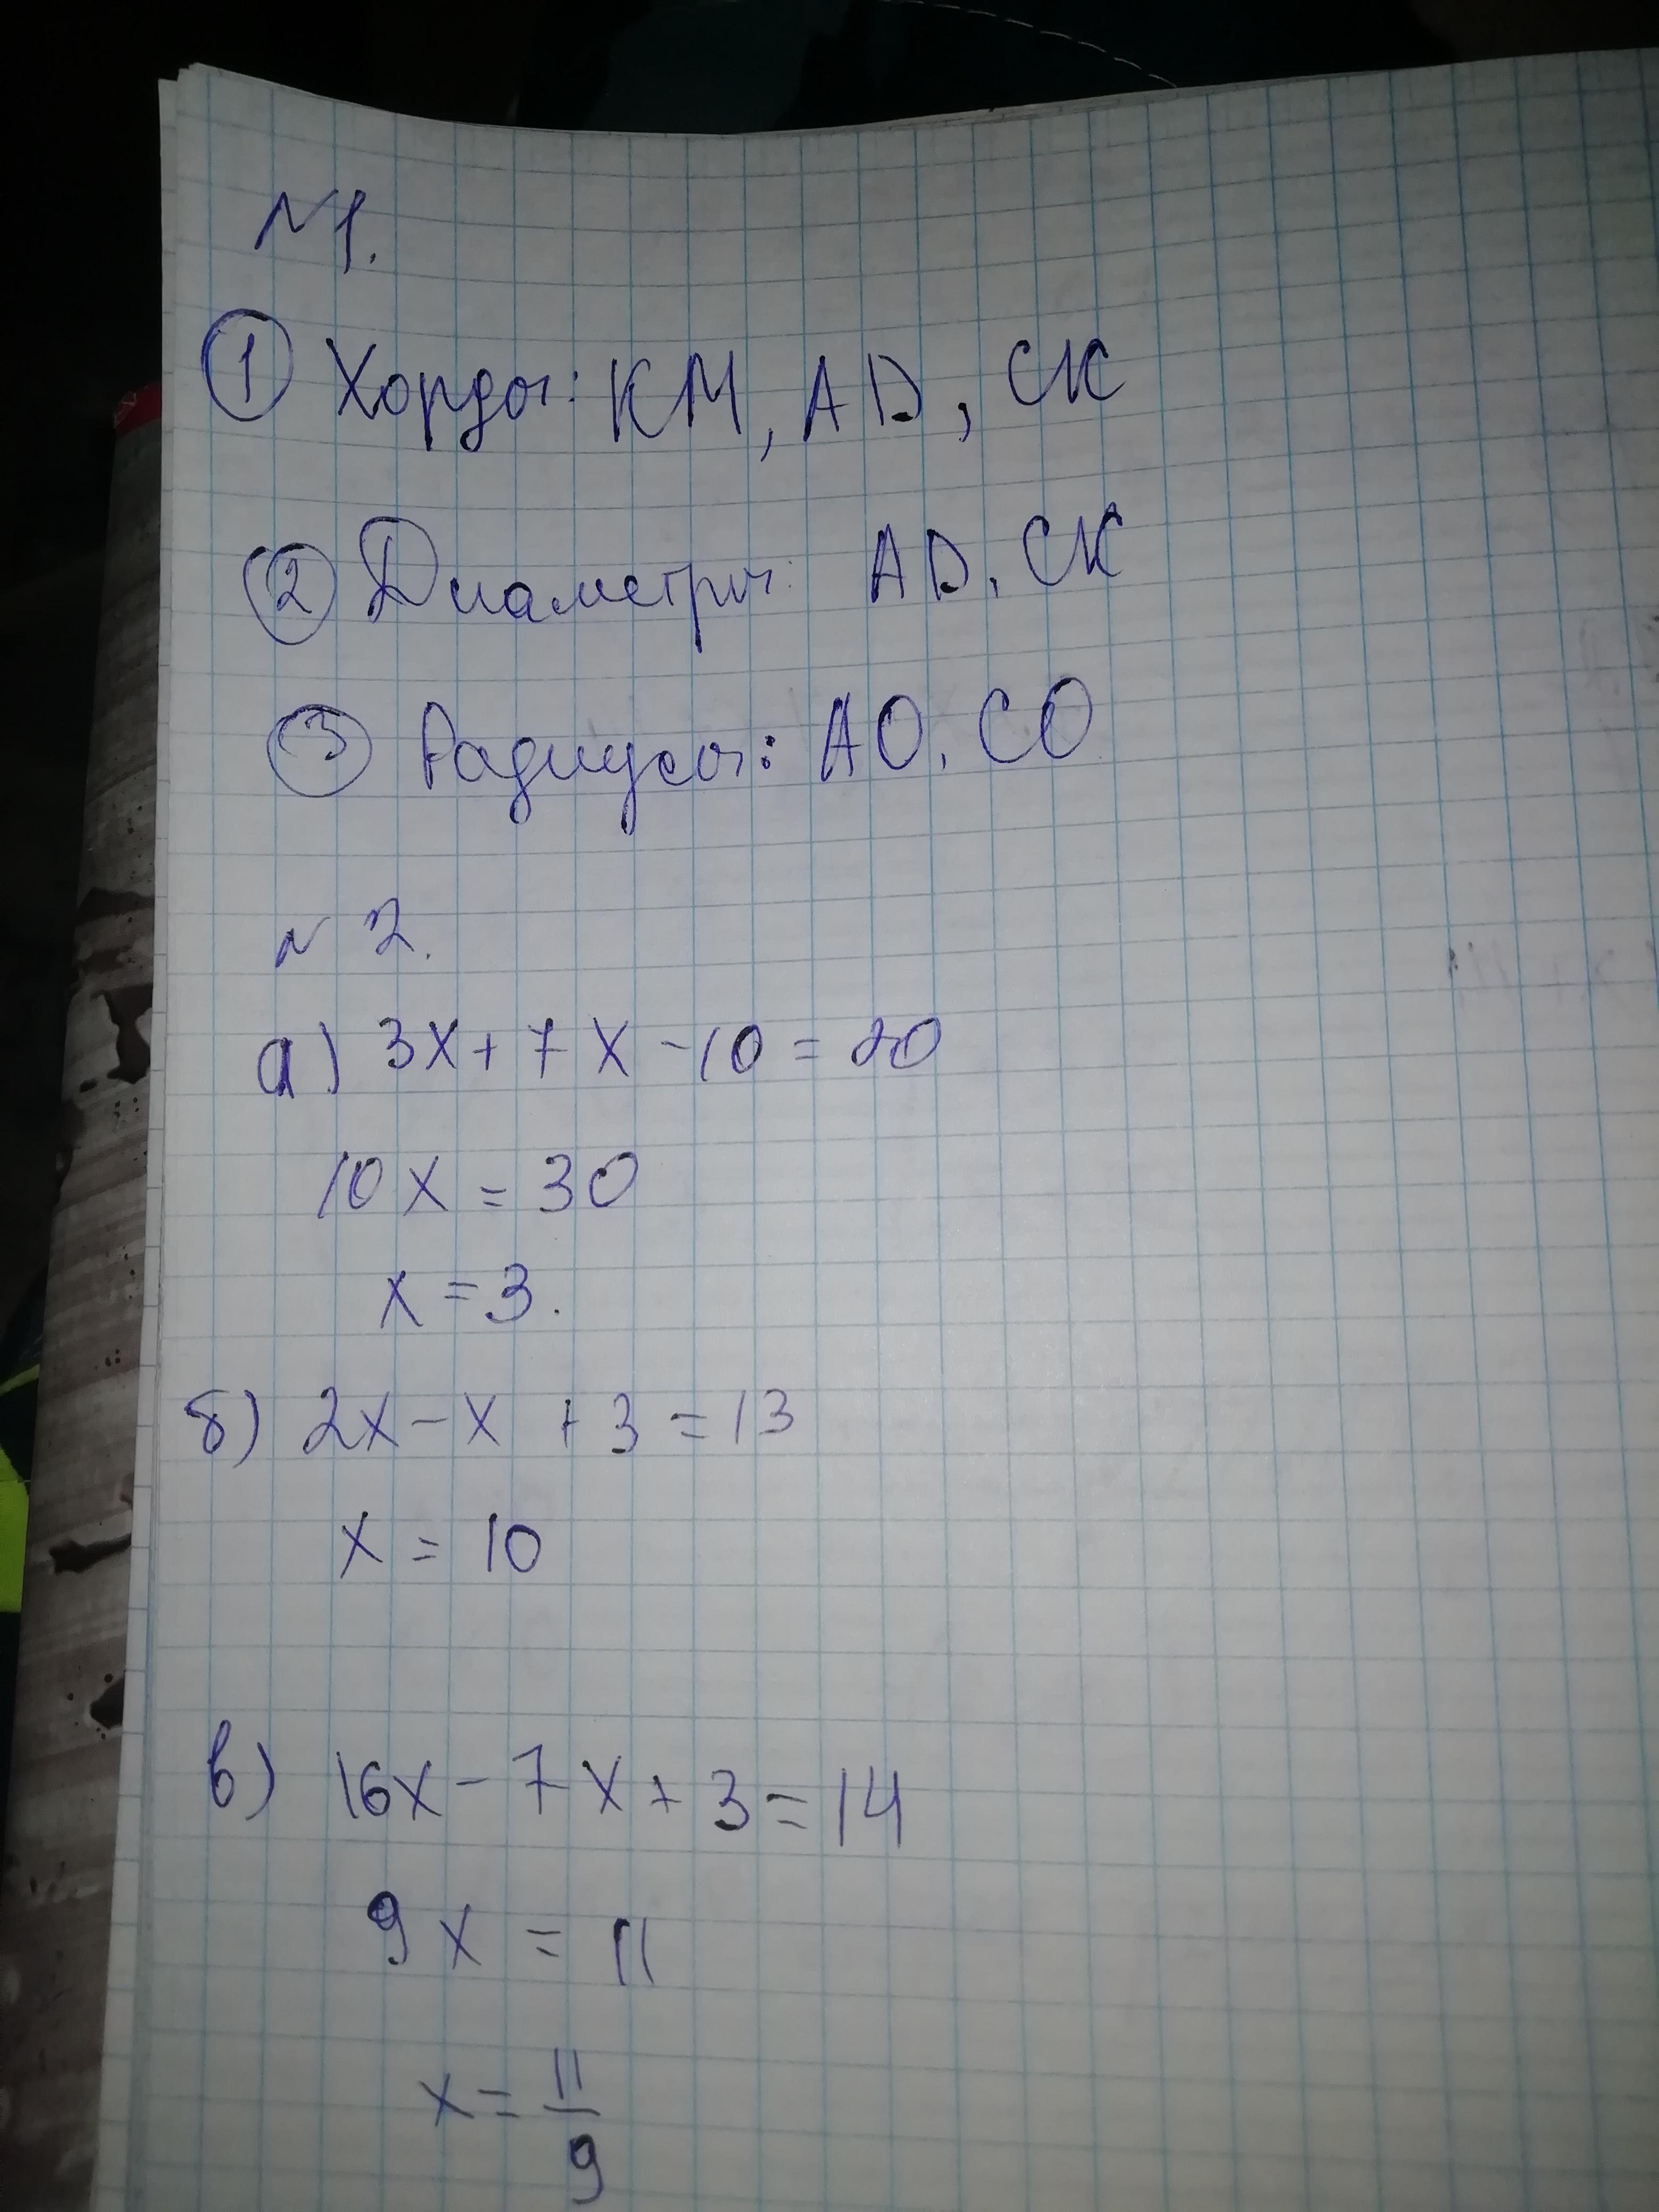 №1.
① Хорды: KM, AD, CK
② Диаметры: AD, CK
③ Радиусы: AO, CO
№ 2.
а) 3x + 7x - 10 = 20
10x = 30
x = 3.
б) 2x - x + 3 = 13
x = 10
в) 16x - 7x + 3 = 14
9x = 11
x = 11/9